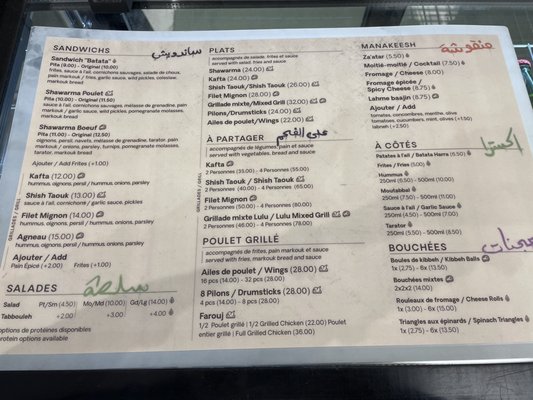 SANDWICHS ساندويش
Sandwich "Batata"
Pita (9.00) - Original (10.00)
frites, sauce à l'ail, cornichons sauvages, salade de choux,
pain markouk / fries, garlic sauce, wild pickles, coleslaw,
markouk bread
Shawarma Poulet
Pita (10.00) - Original (11.50)
sauce à l'ail, cornichons sauvages, mélasse de grenadine, pain
markouk / garlic sauce, wild pickles, pomegranate molasses,
markouk bread
Shawarma Boeuf
Pita (11.00) - Original (12.50)
oignons, persil, navets, mélasse de grenadine, tarator, pain
markouk / onions, parsley, turnips, pomegranate molasses,
tarator, markouk bread
Ajouter / Add Frites (+1.00)
GRILLADES / GRILL
Kafta (12.00)
hummus, oignons, persil / hummus, onions, parsley
Shish Taouk (13.00)
sauce à l'ail, cornichons / garlic sauce, pickles
Filet Mignon (14.00)
hummus, oignons, persil / hummus, onions, parsley
Agneau (15.00)
hummus, oignons, persil / hummus, onions, parsley
Ajouter / Add
Pain Épicé (+2.00) Frites (+1.00)
SALADES سلطة
Salad Pt/Sm (4.50) Mo/Md (10.00) Gd/Lg (14.00)
Tabbouleh +2.00 +3.00 +4.00
options de protéines disponibles
protein options available
PLATS
accompagnés de salade, frites et sauce
served with salad, fries and sauce
Shawarma (24.00)
Kafta (24.00)
Shish Taouk/Shish Taouk (26.00)
Filet Mignon (28.00)
Grillade mixte/Mixed Grill (32.00)
Pilons/Drumsticks (24.00)
Ailes de poulet/Wings (22.00)
À PARTAGER عالفحم
accompagnés de légumes, pain et sauce
served with vegetables, bread and sauce
GRILLADES / GRILL
Kafta
2 Personnes (35.00) - 4 Personnes (55.00)
Shish Taouk / Shish Taouk
2 Personnes (40.00) - 4 Personnes (65.00)
Filet Mignon
2 Personnes (50.00) - 4 Personnes (80.00)
Grillade mixte Lulu / Lulu Mixed Grill
2 Personnes (46.00) - 4 Personnes (78.00)
POULET GRILLÉ
accompagnés de frites, pain markouk et sauce
served with fries, markouk bread and sauce
Ailes de poulet / Wings (28.00)
16 pcs (14.00) - 32 pcs (28.00)
8 Pilons / Drumsticks (28.00)
4 pcs (14.00) - 8 pcs (28.00)
Farouj
1/2 Poulet grillé | 1/2 Grilled Chicken (22.00) Poulet
entier grillé | Full Grilled Chicken (36.00)
MANAKEESH منقوشة
Za'atar (5.50)
Moitié-moitié / Cocktail (7.50)
Fromage / Cheese (8.00)
Fromage épicée /
Spicy Cheese (8.75)
Lahme baajin (8.75)
Ajouter / Add
tomates, concombres, menthe, olives
tomatoes, cucumbers, mint, olives (+1.50)
labneh (+2.50)
À CÔTÉS إكسترا
Patates à l'ail / Batata Harra (6.50)
Frites / Fries (5.00)
Hummus
250ml (6.50) - 500ml (10.00)
Moutabbal
250ml (7.50) - 500ml (11.00)
Sauce à l'ail / Garlic Sauce
250ml (4.50) - 500ml (7.00)
Tarator
250ml (5.50) - 500ml (8.50)
BOUCHÉES عجينات
Boules de kibbeh / Kibbeh Balls
1x (2.75) - 6x (13.50)
Bouchées mixtes
2x2x2 (14.00)
Rouleaux de fromage / Cheese Rolls
1x (3.00) - 6x (15.00)
Triangles aux épinards / Spinach Triangles
1x (2.75) - 6x (13.50)